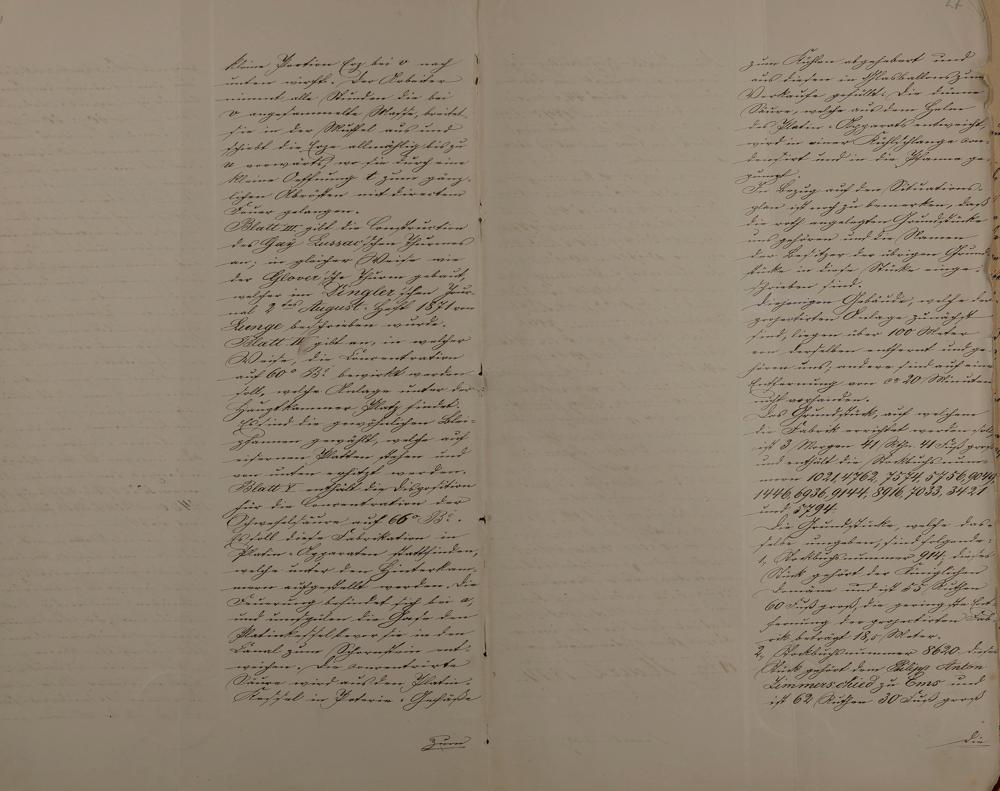 kleine Portion Erz bei v nach
unten wirft. Der Arbeiter
nimmt alle Stunden die bei
v angesammelte Masse, breitet
sie in der Muffel aus und
schiebt die Erze allmählig bis zu
u vorwärts, wo sie durch eine
kleine Oeffnung t zum gänz-
lichen Abrösten mit directem
Feuer gelangen.
Blatt III. gibt die Construction
des Gay Lussac'schen Thurmes
an; in gleicher Weise wie
der Glover'sche Thurm gebaut,
welcher im Dingler'schen Jour-
nal 2tes August-Heft 1871 von
Lunge beschrieben wurde.
Blatt IV gibt an, in welcher
Weise, die Concentration
auf 60° Bé bewirkt werden
soll, welche Anlage unter der
Hauptkammer Platz findet.
Es sind die gewöhnlichen Blei-
pfannen gewählt, welche auf
eisernen Platten stehen und
von unten erhitzt werden.
Blatt V enthält die Disposition
für die Concentration der
Schwefelsäure auf 66° Bé.
Es soll diese Fabrikation in
Platin-Apparaten stattfinden,
welche unter den Hinterkam-
mern aufgestellt werden. Die
Feuerung befindet sich bei a,
und umspülen die Gase den
Platinkessel bevor sie in den
Canal zum Schornstein ent-
weichen. Die concentrirte
Säure wird aus dem Platin-
Kessel in Gefäße
zum
zum Kühlen abgehebert und
aus diesen in Glasballons zum
Verkaufe gefüllt. Die dünne
Säure, welche aus dem Helm
des Platin-Apparats entweicht,
wird in einer Kühlschlange con-
densirt und in die Pfanne ge-
pumpt.
In Bezug auf den Situations-
plan ist noch zu bemerken, daß
die roth angelegten Grundstücke
uns gehören und die Namen
der Besitzer der übrigen Grund-
stücke in diese Stücke einge-
schrieben sind.
Diejenigen Gebäude, welche der
projectirten Anlage zunächst
sind, liegen über 100 Meter
von derselben entfernt und ge-
hören uns; andere sind auf eine
Entfernung von ca 20 Minuten
nicht vorhanden.
Das Grundstück, auf welchem
die Fabrik errichtet werden soll,
ist 3 Morgen 41 Rthn. 41 Fuß groß
und enthält die Stockbuchsnum-
mern 1021, 4762, 7574, 5756, 9049,
1446, 6936, 9144, 8916, 7033, 3421
und 5794.
Die Grundstücke, welche das-
selbe umgeben, sind folgende:
1, Stockbuchsnummer 914; dieses
Stück gehört der Königlichen
Domäne und ist 55 Ruthen
60 Fuß groß, die geringste Ent-
fernung der projectirten Fab-
rik beträgt 18,5 Meter.
2, Stockbuchsnummer 8620. dieses
Stück gehört dem Philipp Anton
Linnerschied zu Ems und
ist 62 Ruthen 30 Fuß groß
die